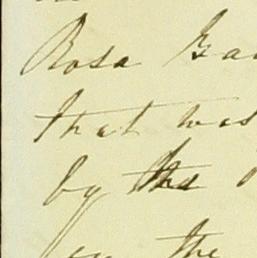 Rosa Ga
that was
by the
the